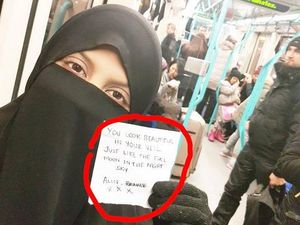 YOU LOOK BEAUTIFUL
IN YOUR VEIL
JUST LIKE THE FULL
MOON IN THE NIGHT
SKY
X X X